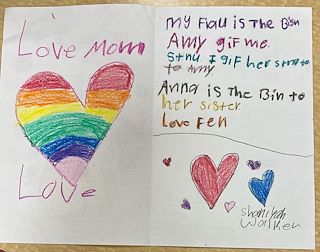 Love Mom
Love
my Fiau is The Bisn
Amy gif me.
Stnu I gif her
to Amy
Anna is The Bin to
her sister
Love Fen
Walker